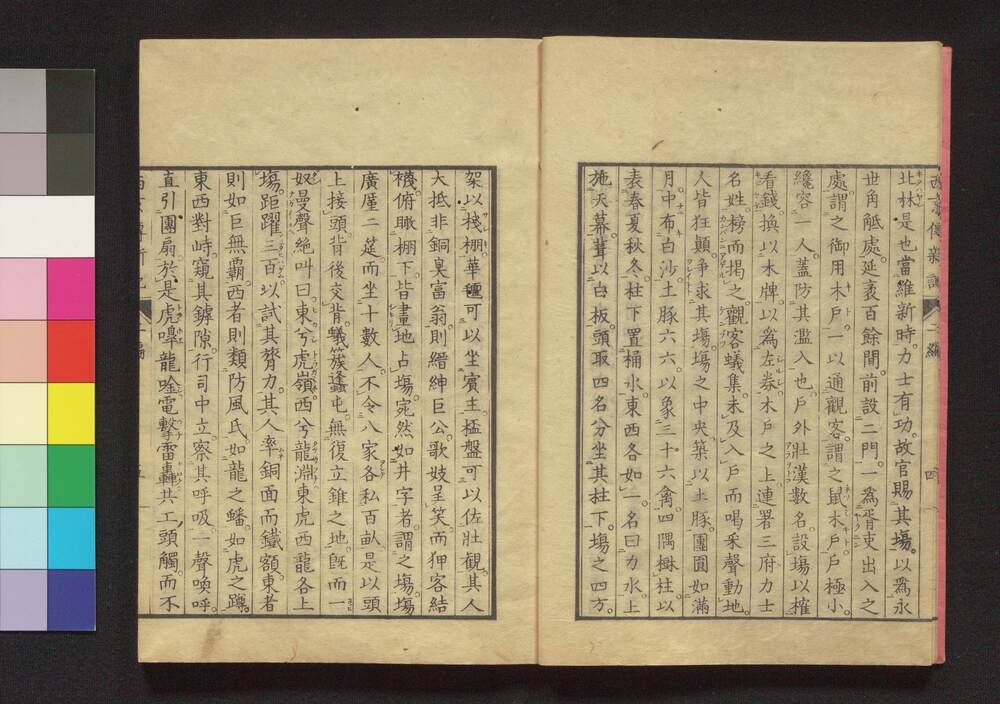 西京傳新記　二編　四
北林是也當維新時力士有功故官賜其塲以為永
世角觝處延袤百餘間前設二門一為胥吏出入之
處謂之御用木戸一以通觀客謂之鼠木戸戸極小
纔容一人蓋防其濫入也戸外壯漢數名設塲以搉
看錢換以木牌以為左券木戸之上連署三府力士
名姓榜而揭之觀客蟻集未及入戸而喝采聲動地
人皆狂顛爭求其塲塲之中央築以土豚團圓如滿
月中布白沙土豚六六以象三十六禽四隅樹柱以
表春夏秋冬柱下置桶水東西各如一名曰力水上
施天幕葺以白板頭取四名分坐其柱下塲之四方
架以棧棚華氈可以坐賓主檯盤可以佐壯觀其人
大抵非銅臭富翁則縉紳巨公歌妓呈笑而狎客結
襪俯瞰棚下皆畫地占塲宛然如井字者謂之塲塲
廣厪二莚而坐十數人不令八家各私百畝是以頭
上接頭背後交背蟻簇蜂屯無復立錐之地既而一
奴曼聲絶叫曰東兮虎嶺西兮龍淵東虎西龍各上
塲距躍三百以試其膂力其人率銅面而鐵額東者
則如巨無霸西者則類防風氏如龍之蟠如虎之蹲
東西對峙窺其罅隙行司中立察其呼吸一聲喚呼
直引團扇於是虎嘷龍唫電擊雷轟共工頭觸而不